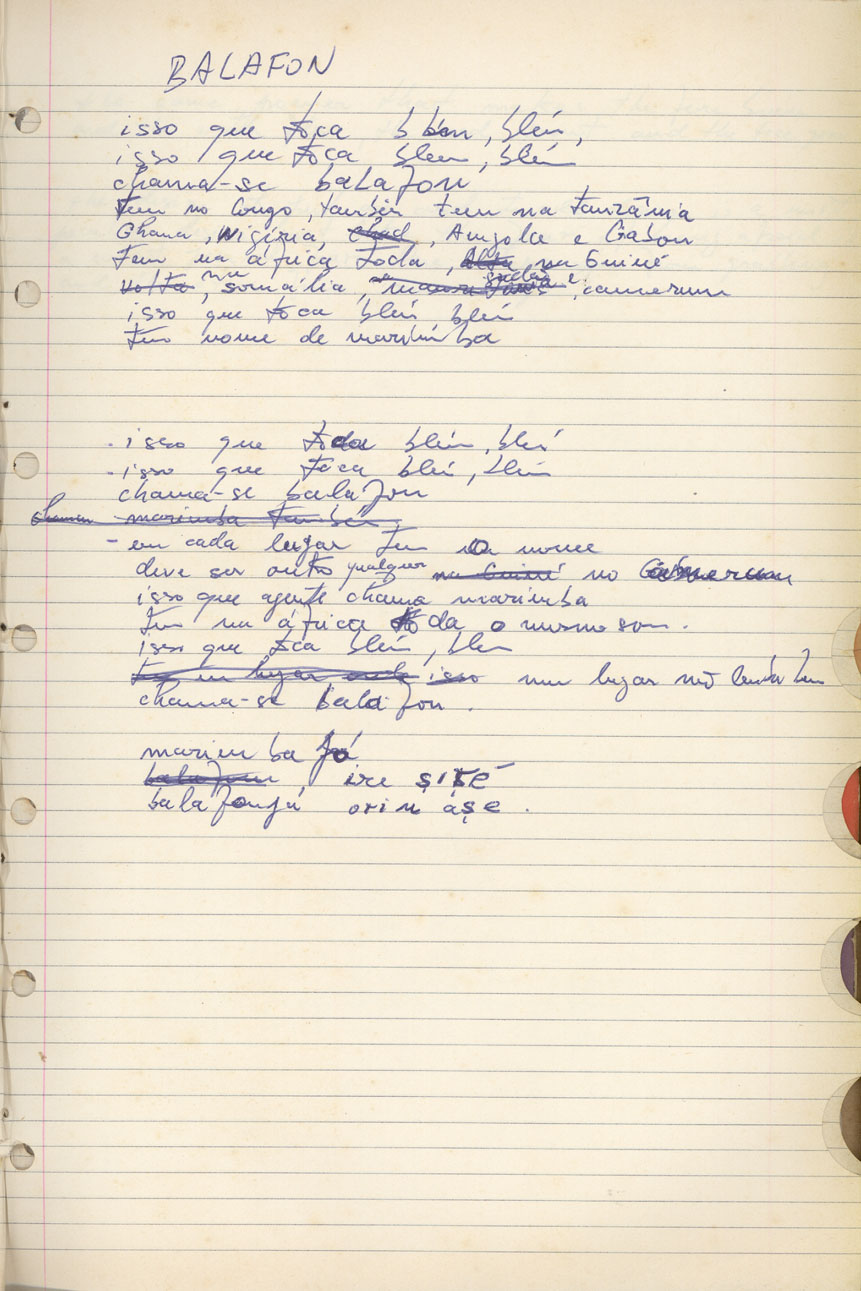 BALAFON
isso que toca bben, blén,
isso que toca blem, blém
chama-se balafon
tem no Congo, também tem na Tanzânia
Ghana, Nigéria, chad, Angola e Gabon
tem na áfrica toda, Alta na Guiné
volta, na somália, sudão e camerum
isso que toca blém blém
tem nome de marimba
- isso que toca blém, blém
- isso que toca blém, blém
chama-se balafon
chamam marimba também,
- em cada lugar tem o nome
deve ser outro qualquer na Guiné no Camerum
isso que agente chama marimba
tem na áfrica toda o mesmo som.
isso que toca blém, blem
isso num lugar não lembro bem
chama-se balafon.
marimbafá
balafon, ire ṣiṣé
balafonjá orin àṣe.